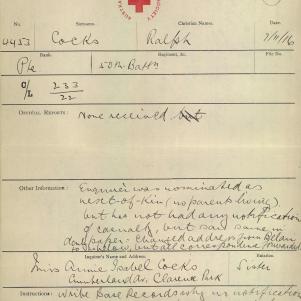 SOCIETY
No. Surname. Christian Name. Date.
4453 Cocks Ralph 7/11/16
Rank. Regiment, &c. File No.
Pte 50th Battn
O/L 233/22
OFFICIAL REPORTS: None received but
Other Information: Enquirer was nominated as
next-of-kin (no parents living)
but has not had any notification
of casualty, but saw same in
daily paper - Changed address from
to below, but all correspondence forwarded
Inquirer's Name and Address. Relation.
Miss Annie Isabel Cocks Sister
Cumberland Av. Clarence Park
Instructions: Write Base Records why no notification